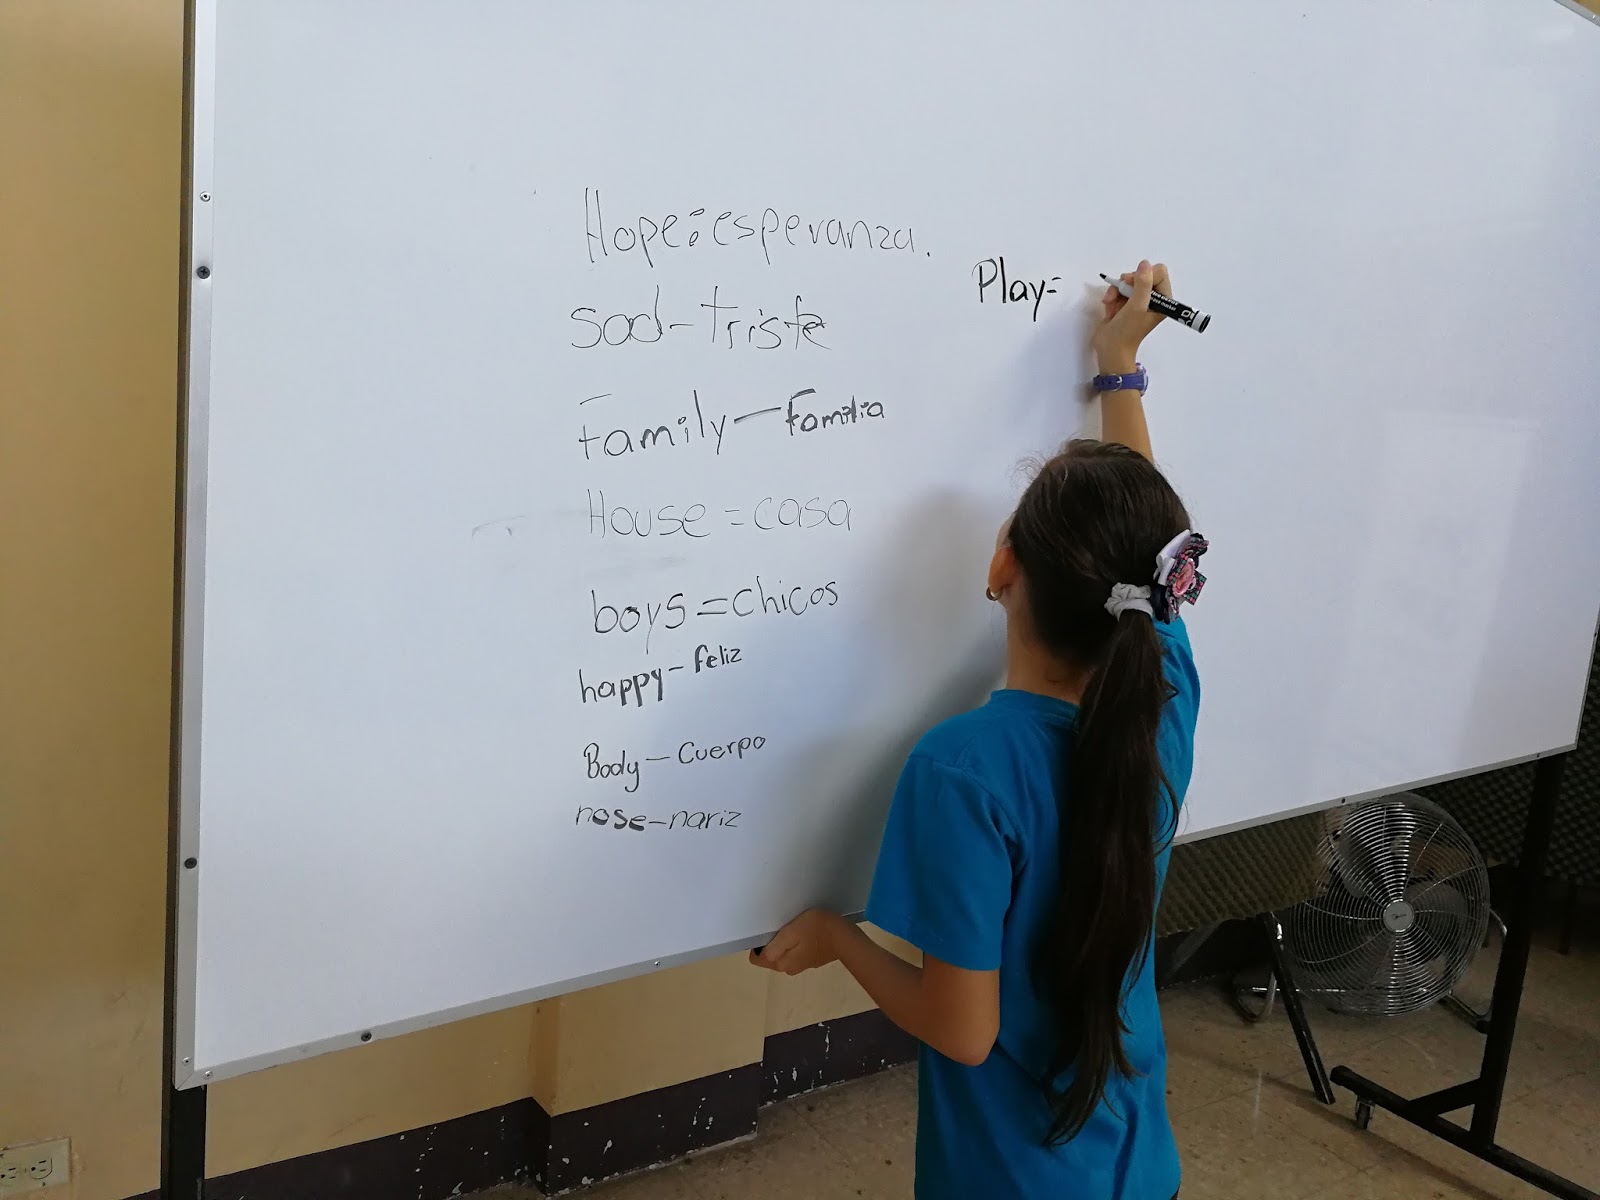 Hope: esperanza.
sad - Triste
Family - Familia
House = casa
boys = chicos
happy - feliz
Body - Cuerpo
nose - nariz
Play=